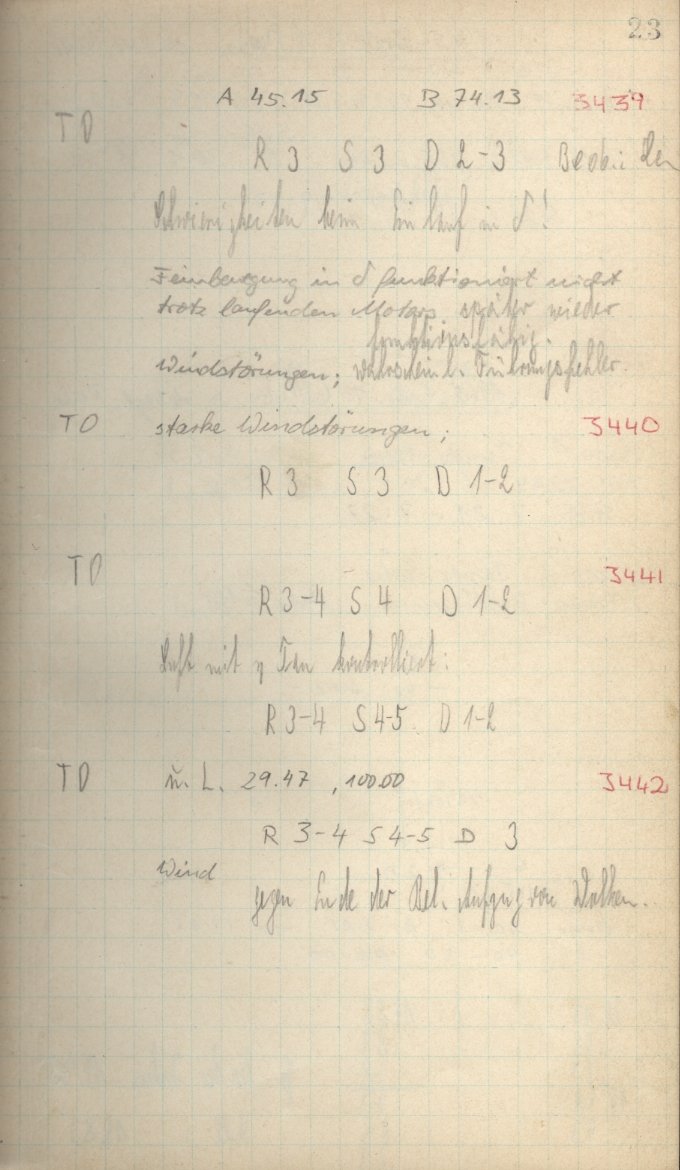 23
A 45.15 B 74.13 3439
TO
R 3 S 3 D 2-3 Beob.:
Schwierigkeiten beim Einlauf in δ!
Feinbewegung in δ funktioniert nicht
trotz laufenden Motors, später wieder
funktionsfähig.
Windstörungen; wahrscheinl. Führungsfehler.
TO starke Windstörungen; 3440
R 3 S 3 D 1-2
TO 3441
R 3-4 S 4 D 1-2
Luft mit γ kontrolliert:
R 3-4 S 4-5 D 1-2
TO n. L. 29.47, 100.00 3442
R 3-4 S 4-5 D 3
Wind
gegen Ende der Bel. Aufzug von Wolken.